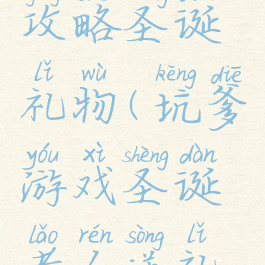 攻略圣诞
lǐ wù kēng diē
礼物(坑爹
yóu xì shèng dàn
游戏圣诞
lǎo rén sòng lǐ
老人送礼